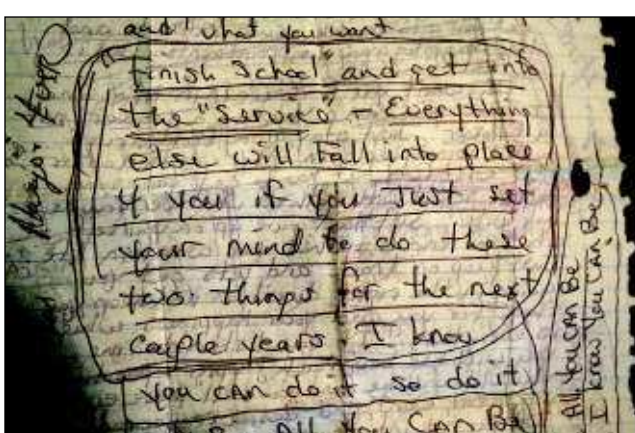 and what you want
"Finish School" and get into
the "Service" - Everything
else will Fall into place
4 you if you Just set
your mind to do these
two things for the next
couple years. I know
you can do it so do it
All You CAN Be
Always
All You CAN Be
I know You CAN Be